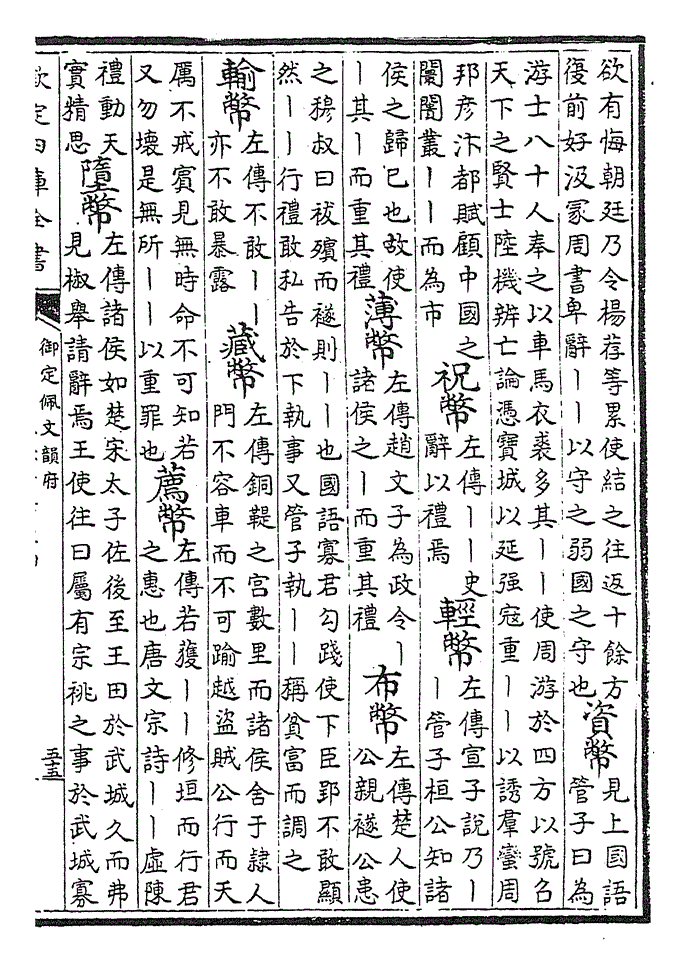 欲有悔朝廷乃令楊荐等累使結之往返十餘方
復前好汲冢周書卑辭丨丨以守之弱國之守也
資幣
見上國語
管子曰為
游士八十人奉之以車馬衣裘多其丨丨使周游於四方以號召
天下之賢士陸機辨亡論憑寶城以延强冦重丨丨以誘羣蠻周
邦彦汴都賦顧中國之
闤闠叢丨丨而為市
祝幣
左傳丨丨史
辭以禮焉
輕幣
左傳宣子說乃丨
丨管子桓公知諸
侯之歸已也故使
丨其丨而重其禮
薄幣
左傳趙文子為政令丨
諸侯之丨而重其禮
布幣
左傳楚人使
公親襚公患
之穆叔曰祓殯而襚則丨丨也國語寡君勾踐使下臣郢不敢顯
然丨丨行禮敢私告於下執事又管子執丨丨稱貧富而調之
輸幣
左傳不敢丨丨
亦不敢暴露
藏幣
左傳銅鞮之宮數里而諸侯舍于隸人
門不容車而不可踰越盜賊公行而天
厲不戒賓見無時命不可知若
又勿壞是無所丨丨以重罪也
薦幣
左傳若獲丨丨修垣而行君
之惠也唐文宗詩丨丨虛陳
禮動天
實精思
墮幣
左傳諸侯如楚宋太子佐後至王田於武城久而弗
見椒舉請辭焉王使往曰屬有宗祧之事於武城寡
欽定四庫全書
御定佩文韻府
五五